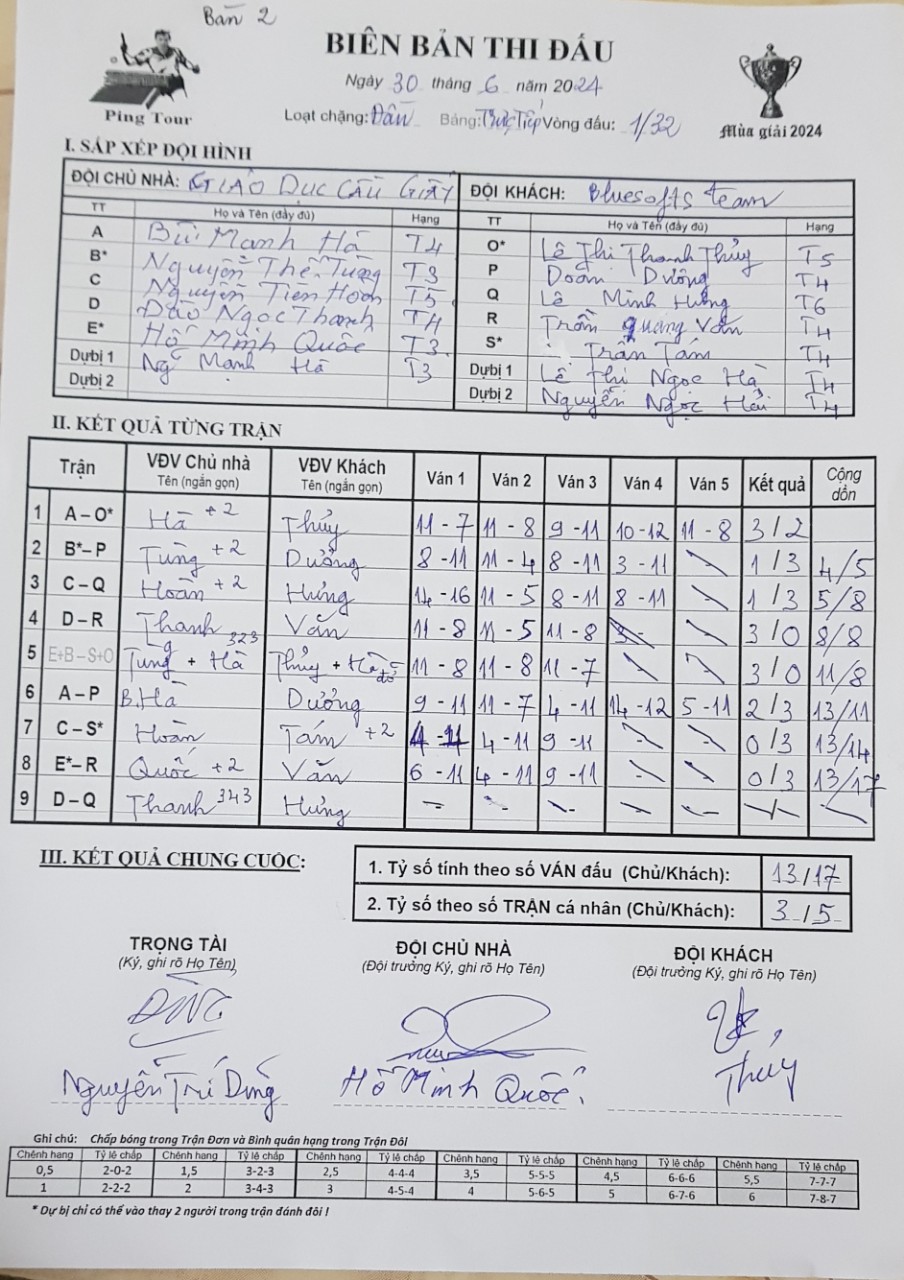 Bàn 2
BIÊN BẢN THI ĐẤU
Ngày 30 tháng 6 năm 2024
Ping Tour
Loạt chặng: Đấu Bảng: Trực Tiếp Vòng đấu: 1/32
Mùa giải 2024
I. SẮP XẾP ĐỘI HÌNH
ĐỘI CHỦ NHÀ: GIÁO DỤC CẦU GIẤY ĐỘI KHÁCH: Bluesofts team
TT Họ và Tên (đầy đủ) Hạng TT Họ và Tên (đầy đủ) Hạng
A Bùi Mạnh Hà T4 O* Lê Thị Thanh Thủy T5
B* Nguyễn Thế Tùng T3 P Doãn Dưỡng T4
C Nguyễn Tiến Hoàn T5 Q Lê Minh Hưng T6
D Đào Ngọc Thanh T4 R Trần Quang Vấn T4
E* Hồ Minh Quốc T3 S* Trần Tám T4
Dự bị 1 Ngô Mạnh Hà T3 Dự bị 1 Lê Thị Ngọc Hà T4
Dự bị 2 Dự bị 2 Nguyễn Ngọc Hải T4
II. KẾT QUẢ TỪNG TRẬN
Trận VĐV Chủ nhà VĐV Khách Ván 1 Ván 2 Ván 3 Ván 4 Ván 5 Kết quả Cộng dồn
Tên (ngắn gọn) Tên (ngắn gọn)
1 A – O* Hà +2 Thủy 11 - 7 11 - 8 9 - 11 10 - 12 11 - 8 3 / 2
2 B* – P Tùng +2 Dưỡng 8 - 11 11 - 4 8 - 11 3 - 11 1 / 3 4/5
3 C – Q Hoàn +2 Hưng 14 - 16 11 - 5 8 - 11 8 - 11 1 / 3 5/8
4 D – R Thanh Vấn 11 - 8 11 - 5 11 - 8 3 / 0 8/8
5 E+B – S+O Tùng + Hà 323 Thủy + Hà 11 - 8 11 - 8 11 - 7 3 / 0 11/8
6 A – P B.Hà Dưỡng 9 - 11 11 - 7 4 - 11 14 - 12 5 - 11 2 / 3 13/11
7 C – S* Hoàn Tám +2 4 - 11 4 - 11 9 - 11 0 / 3 13/14
8 E* – R Quốc +2 Vấn 6 - 11 4 - 11 9 - 11 0 / 3 13/17
9 D – Q Thanh 343 Hưng
III. KẾT QUẢ CHUNG CUỘC:
1. Tỷ số tính theo số VÁN đấu (Chủ/Khách): 13/17
2. Tỷ số theo số TRẬN cá nhân (Chủ/Khách): 3 / 5
TRỌNG TÀI ĐỘI CHỦ NHÀ ĐỘI KHÁCH
(Ký, ghi rõ Họ Tên) (Đội trưởng Ký, ghi rõ Họ Tên) (Đội trưởng Ký, ghi rõ Họ Tên)
Nguyễn Trí Dũng Hồ Minh Quốc. Thủy
Ghi chú: Chấp bóng trong Trận Đơn và Bình quân hạng trong Trận Đôi
Chênh hạng Tỷ lệ chấp Chênh hạng Tỷ lệ chấp Chênh hạng Tỷ lệ chấp Chênh hạng Tỷ lệ chấp Chênh hạng Tỷ lệ chấp Chênh hạng Tỷ lệ chấp
0,5 2-0-2 1,5 3-2-3 2,5 4-4-4 3,5 5-5-5 4,5 6-6-6 5,5 7-7-7
1 2-2-2 2 3-4-3 3 4-5-4 4 5-6-5 5 6-7-6 6 7-8-7
* Dự bị chỉ có thể vào thay 2 người trong trận đánh đôi !